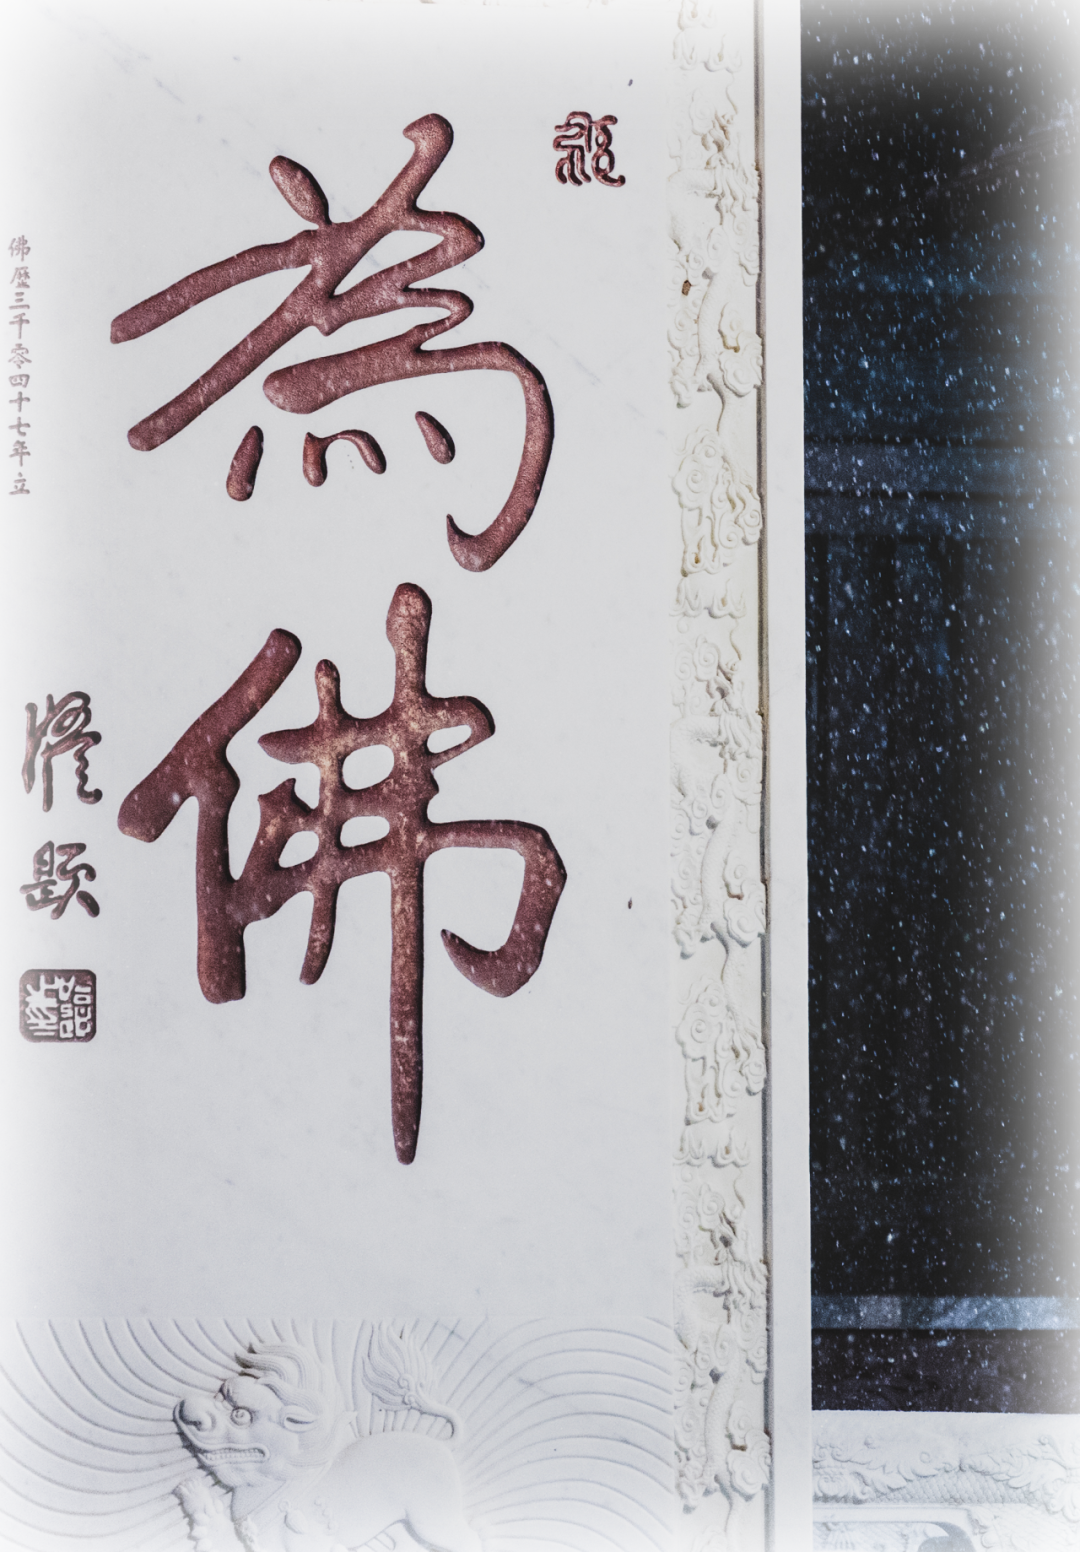 為佛
佛曆三千零四十七年立
題